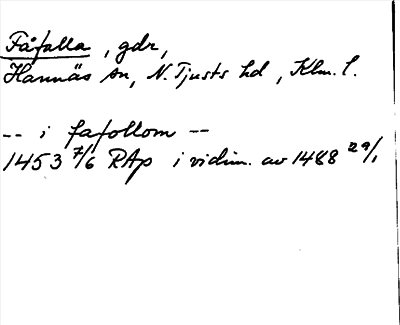 Fåfalla, gdr,
Hannäs sn, N. Tjusts hd, Klm. l.
-- i fafollom --
1453 7/6 RAp i vidim. av 1488 29/1